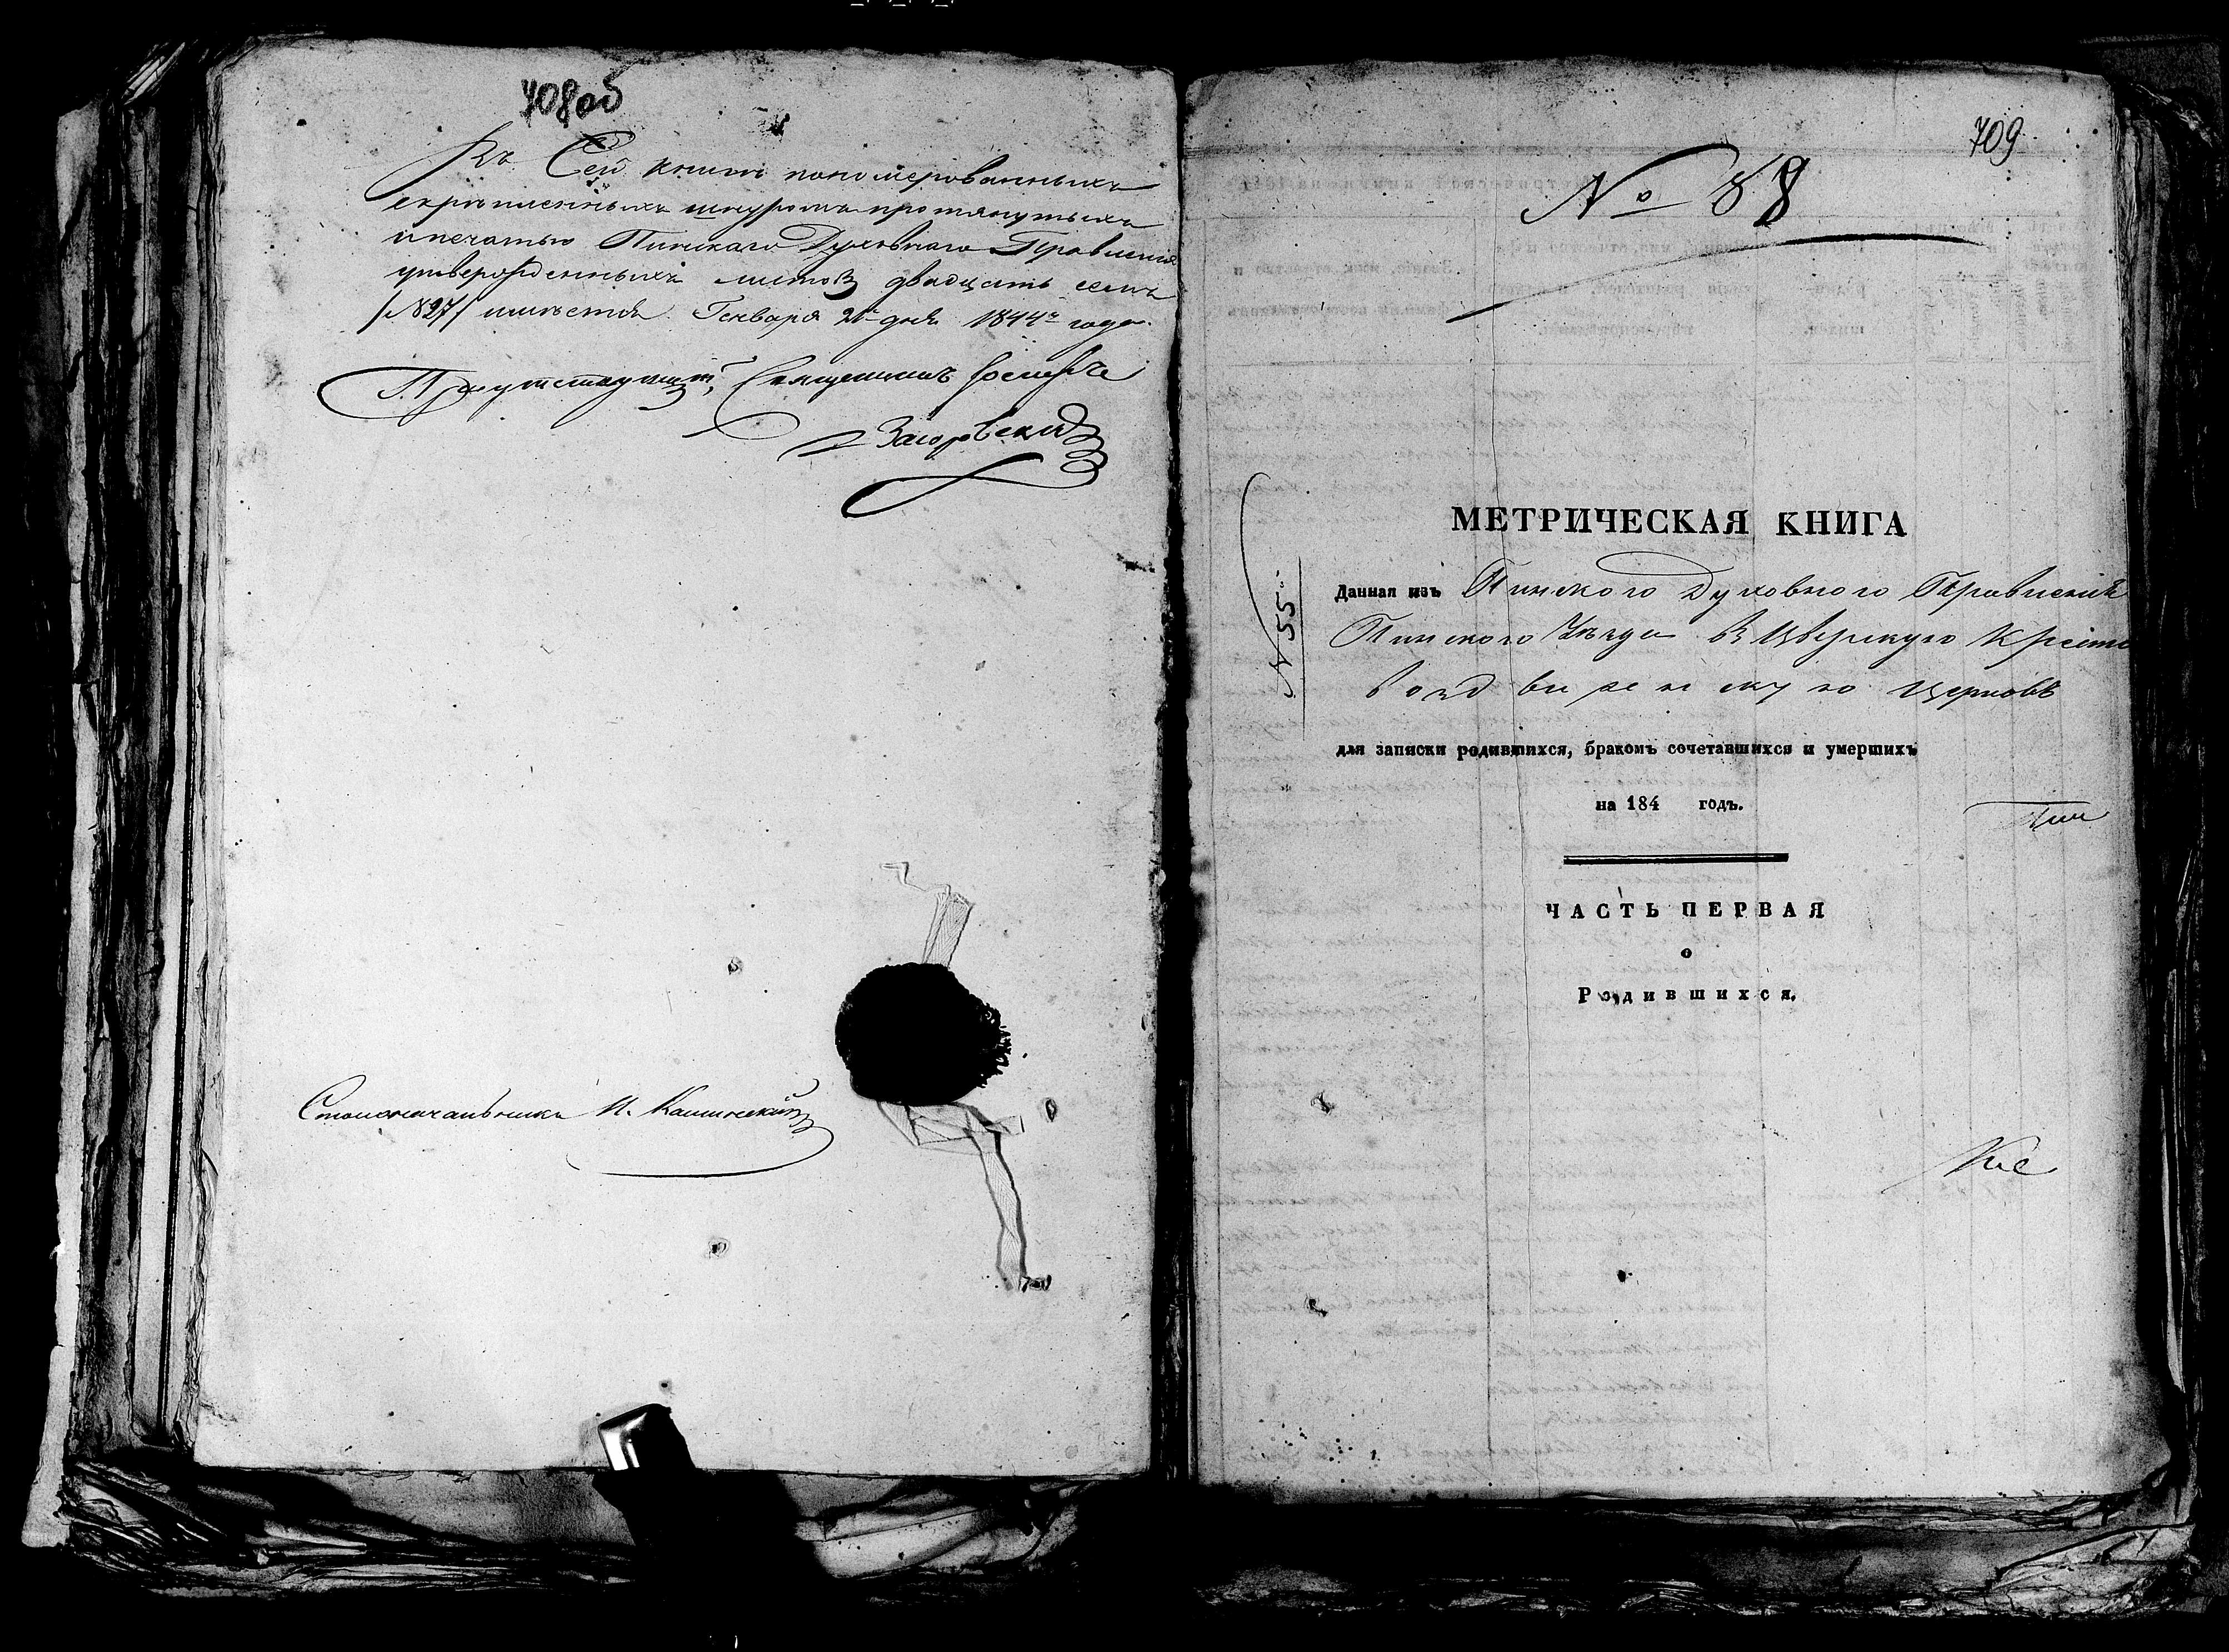 708об
Къ Сей книги пономерованныхъ
скрепленныхъ шнуромъ протянутыхъ
и печатью Пинскаго Духовнаго Правления
утвержденныхъ листовъ двадцать семь
/№27/ имѣется Генваря 2 дня 1844 года.
Присутствующій Священникъ Іосифъ
Загоровскій
Столоначальникъ И.
709
№ 88
№ 55
МЕТРИЧЕСКАЯ КНИГА
Данная изъ Пинского Духовного Правленія
Пинского Уѣзда въ Кресто
воздвиженскую Церковь
для записки родившихся, бракомъ сочетавшихся и умершихъ
на 184 годъ.
Пин
ЧАСТЬ ПЕРВАЯ
о
Родившихся.